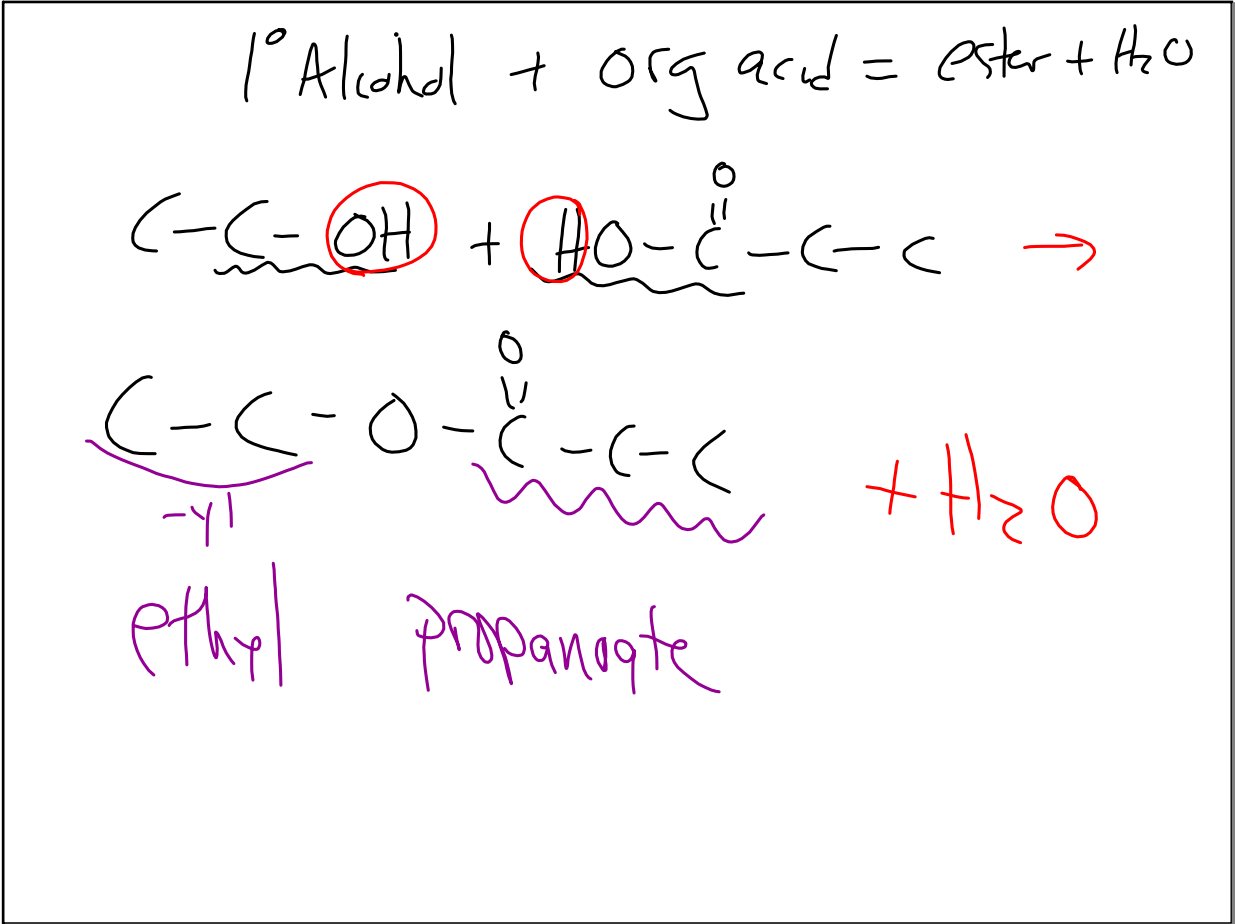 1° Alcohol + org acid = ester + H₂O
O
C-C-OH + HO-C-C-C →
O
C-C-O-C-C-C + H₂O
-yl
ethyl propanoate